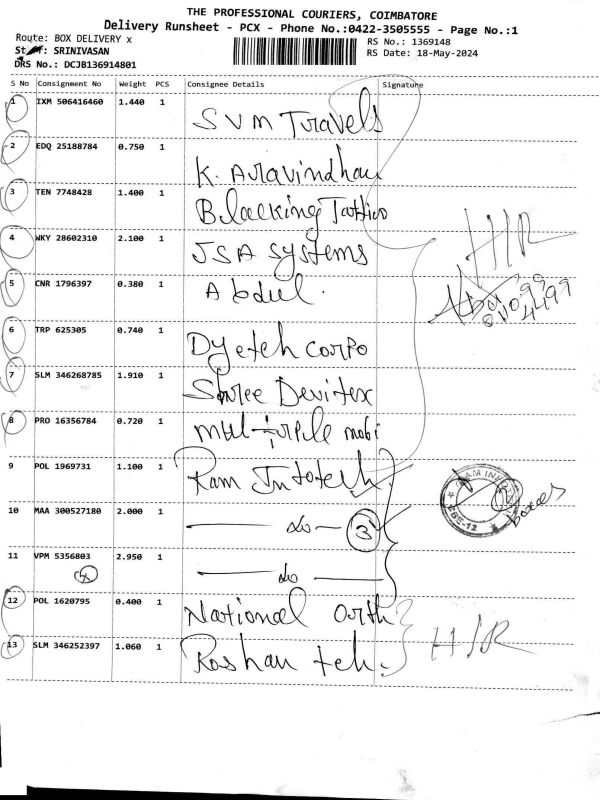 THE PROFESSIONAL COURIERS, COIMBATORE
Delivery Runsheet - PCX - Phone No.:0422-3505555 - Page No.:1
Route: BOX DELIVERY x
RS No.: 1369148
SRINIVASAN
RS Date: 18-May-2024
DRS No.: DCJB136914801
S No Consignment No Weight PCS Consignee Details Signature
1 IXM 506416460 1.440 1
SVM Travels
2 EDQ 25188784 0.750 1
K. Aravindhan
3 TEN 7748428 1.400 1
Blacking Tattoo
4 WKY 28602310 2.100 1
JSA Systems
5 CNR 1796397 0.380 1
Abdul.
6 TRP 625305 0.740 1
Dyetch corpo
7 SLM 346268785 1.910 1
Shree Devitex
8 PRO 16356784 0.720 1
mobi
9 POL 1969731 1.100 1
Ram Infotech
10 MAA 300527180 2.000 1
do 3
11 VPM 5356803 2.950 1
do
12 POL 1620795 0.400 1
National orth
13 SLM 346252397 1.060 1
Roshan teh.